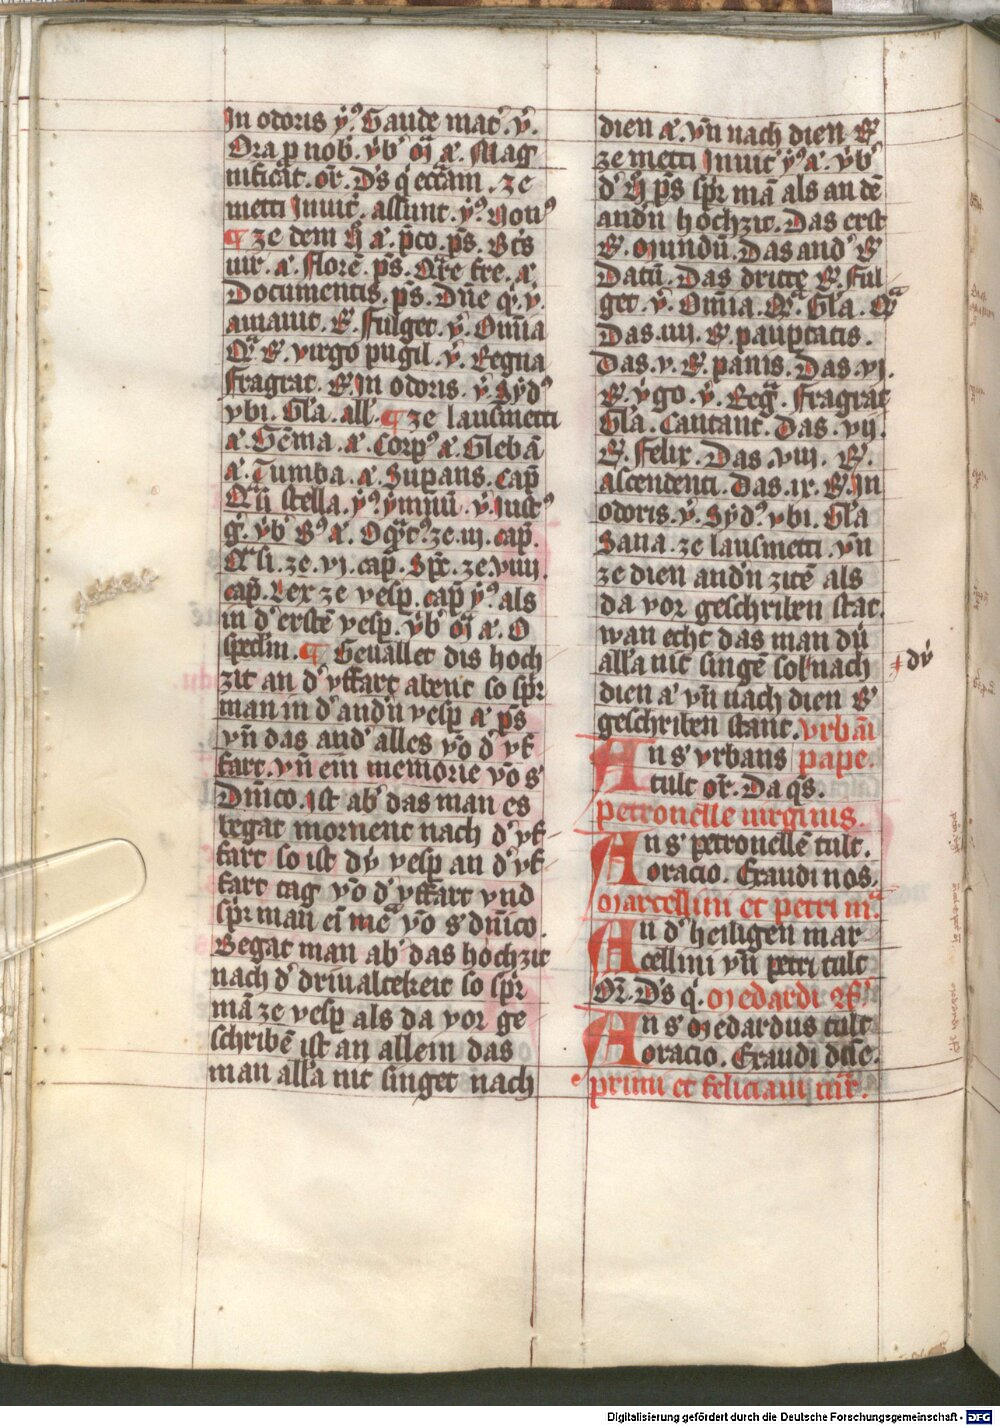 In odoris ẏ⁹ Gaude mat᷑. ẏ.
Ora p̱ nob̄. ẏb᷑ oī a᷑. Mag
nificat. or̄. Ds̄ q̇ eccłam. ze
metti Inuit᷑. assunt. ẏ⁹ Non⁹
¶ ze dem N̄ a᷑. p̄co. ps̄. Bt̄s
uir. a᷑. florē. ps̄. Qr̄e fre. a᷑.
Documentis. ps̄. Dn̄e q̇. ẏ.
amauit. R̷. Fulget. ẏ. Om̄ia
Qᷓ R̷. virgo pugil. ẏ. Regna
fragrat. R̷. In odoris. ẏ. Sẏd᷑
vbi. Gła. all᷑. ¶ ze lausmetti
a᷑. Gēma. a᷑. Corp⁹ a᷑. Glebā
a᷑. Tumba. a᷑. Supans. cap̄
Qⁱi stella. ẏ⁹ ẏmnū. ẏ. Iust⁹
g᷑. ẏb᷑ B⁹ a᷑. O qᷓt⁹. ze .iii. cap̄.
Qᷓsi. ze .vi. cap̄. Spr̄. ze .viiii.
cap̄. Lex ze vesp̄. cap̄ ẏ⁹ als
in d᷑ erstē vesp̄. ẏb᷑ oī a᷑. O
specłm. ¶ Geuallet dis hoch
zit an d᷑ vffart abent so spr̄
man in d᷑ andn᷑ vesp̄ a᷑ ps̄
vn̄ das and᷑ alles vō d᷑ vf
fart. vn̄ ein memorie vō s᷑
Dn̄ico. Ist ab᷑ das man es
begat mornent nach d᷑ vf
fart so ist dù vesp̄ an d᷑ vf
fart tag vō d᷑ vffart vnd
spr̄ man ei᷑ mēᷓ vō s᷑ dn̄ico.
Begat man ab᷑ das hochzit
nach d᷑ driualtekeit so spr̄
mā ze vesp̄ als da vor ge
schribē ist an allein das
man alła nit singet nach
dien a᷑. vn̄ nach dien R̷
ze metti Inuit᷑ ẏ⁹ a᷑. ẏb᷑
d᷑ N̄ ps̄ spr᷑ mā als an dē
andn᷑ hochzit. Das erst
R̷. Mundū. Das and᷑ R̷
Datū. Das dritte R̷. Ful
get. ẏ. Om̄ia. Qᷓ. Gła. Qᷓ
Das .iiii. R̷. paup̱tatis.
Das .v. R̷. panis. Das .vi.
R̷. v᷑go. ẏ. Regᷓ. Fragrat
Gła. Cantant. Das .vii.
R̷. Felix. Das .viii. R̷.
ascendenti. Das .ix. R̷. In
odoris. ẏ. Sẏd᷑ vbi. Gła
Sana. ze lausmetti. vn̄
ze dien andn᷑ zitē als
da vor geschriben stat.
wan echt das man dù
alła nit singē sol nach ⸸ dù
dien a᷑ vn̄ nach dien R̷
geschriben stant. vrbāi
An s᷑ vrbans pape.
tult or̄. Da qs̄.
petronelle uirginis.
An s᷑ petronellē tult.
oracio. Exaudi nos.
Marcellini et petri mᷓ.
An d᷑ heiligen mar
cellini vn̄ petri tult
Or̄. Ds̄ q̇. Medardi Ep̄i
An s᷑ Medardus tult
oracio. Exaudi dn̄e.
primi et feliciani mr̄.
Digitalisierung gefördert durch die Deutsche Forschungsgemeinschaft - DFG